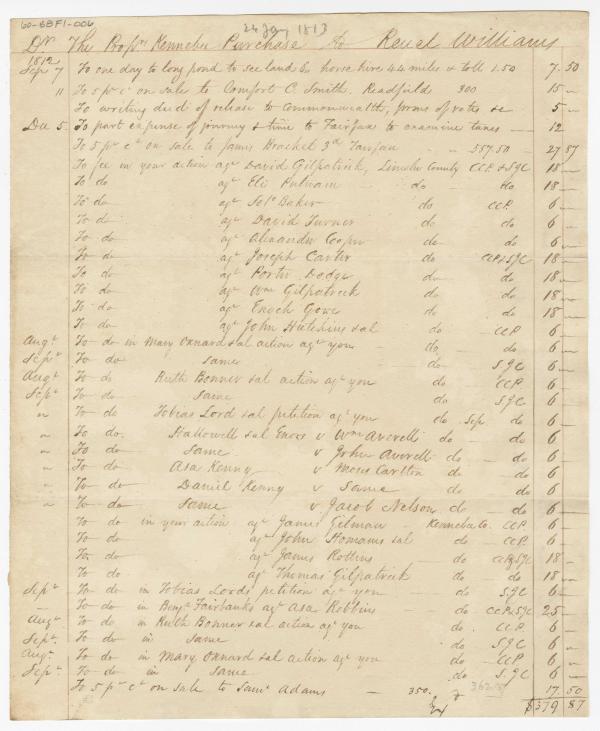 60-BBF1-006
26 Jany 1813
Dr. The Proprs Kennebec Purchase To Reuel Williams
1812
Sep 7 To one day to long pond to see lands & horse hire 44 miles & toll 1.50 7. 50
" To 5 pr ct on sales to Comfort C. Smith. Readfield 300 15 —
To writing deed of release to Commonwealth, forms of votes &c 5 —
Dec 5. To part expense of journey & time to Fairfax to examine taxes — 12
To 5 pr ct on sale to James Bracket 3d Fairfax — 557.50 — 27 87
To fee in your action agt David Gilpatrick, Lincoln County CCP. & SJC 18 —
To do agt Eli Putnam — do — do 18 —
To do agt Sol. Baker do CCP. 6 —
To do agt David Turner do do 6 —
To do agt Alexander Cooper do do 6 —
To do agt Joseph Carter do CCP & SJC 18 —
To do agt Porter Dodge do do 18 —
To do agt Wm Gilpatrick do do 18 —
To do agt Enoch Gove do do 18 —
To do agt John Hutchins &al do CCP. 6 —
Augt To do in Mary Oxnard &al action agt you — do — do 6 —
Sept To do same — do S.J.C 6 —
Augt To do Ruth Bonner &al action agt you do CCP 6 —
Sept To do Same do SJC 6 —
" To do Tobias Lord &al petition agt you do Sep. do 6 —
" To do. Hallowell &al Exors v Wm Averell do — do 6 —
" To do Same v John Averell do — do 6 —
" To do Asa Kenny v Moses Carlton do do 6 —
" To do Daniel Kenny v Same do do 6 —
" To do Same v Jacob Nelson do do 6 —
To do in your action agt James Gilman — Kennebec Co. CCP. 6 —
To do agt John Homans &al do CCP. 6 —
To do agt James Rollins do CCP & SJC 18 —
To do agt Thomas Gilpatrick do do 18 —
Sept To do in Tobias Lords' petition agt you — do SJC 6 —
— To do in Benj. Fairbanks agt Asa Robbins — do CCP & SJC 25 —
Augt To do in Ruth Bonner &al action agt you do. CCP. 6 —
Sept. To do in Same do SJC 6 —
Augt. To do in Mary Oxnard &al action agt you do — CCP 6 —
Sept. To do in Same do — S.JC 6 —
To 5 pr ct on sale to Saml Adams — 350. 17. 50
$379 87